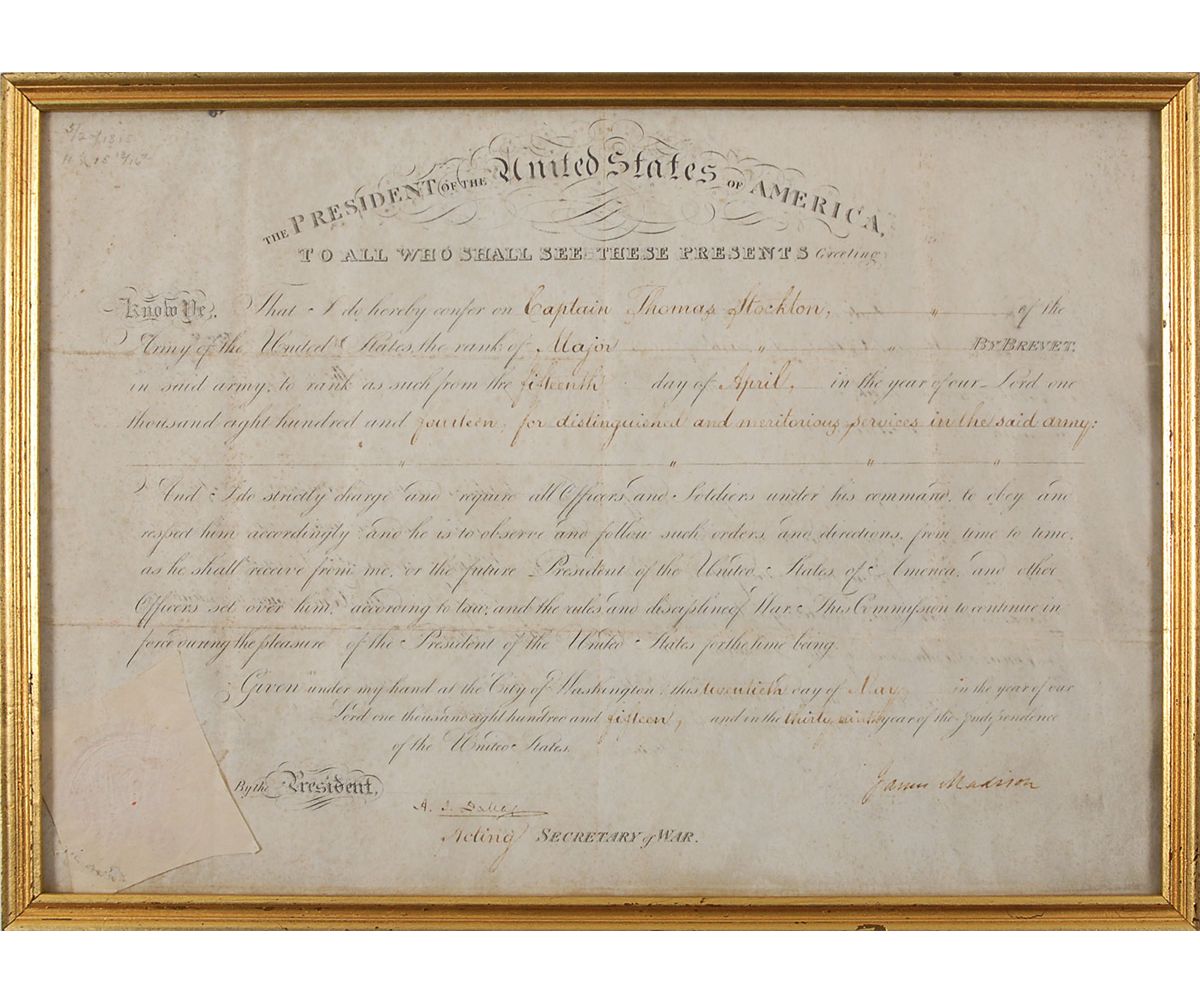 THE PRESIDENT OF THE United States OF AMERICA,
TO ALL WHO SHALL SEE THESE PRESENTS Greeting
Know Ye, That I do hereby confer on Captain Thomas Stockton, " of the
Army of the United States, the rank of Major " " BY BREVET,
in said army, to rank as such from the fifteenth day of April, in the year of our Lord one
thousand eight hundred and fourteen, for distinguished and meritorious services in the said army:
" " " "
And I do strictly charge and require all Officers and Soldiers under his command, to obey and
respect him accordingly: and he is to observe and follow such orders, and directions, from time to time,
as he shall receive from me, or the future President of the United States of America, and other
Officers set over him, according to law, and the rules and discipline of War. This Commission to continue in
force during the pleasure of the President of the United States for the time being.
Given under my hand at the City of Washington, this twentieth day of May in the year of our
Lord one thousand eight hundred and fifteen, and in the thirty ninth year of the Independence
of the United States.
By the President,
James Madison
A. J. Dallas
Acting SECRETARY of WAR.